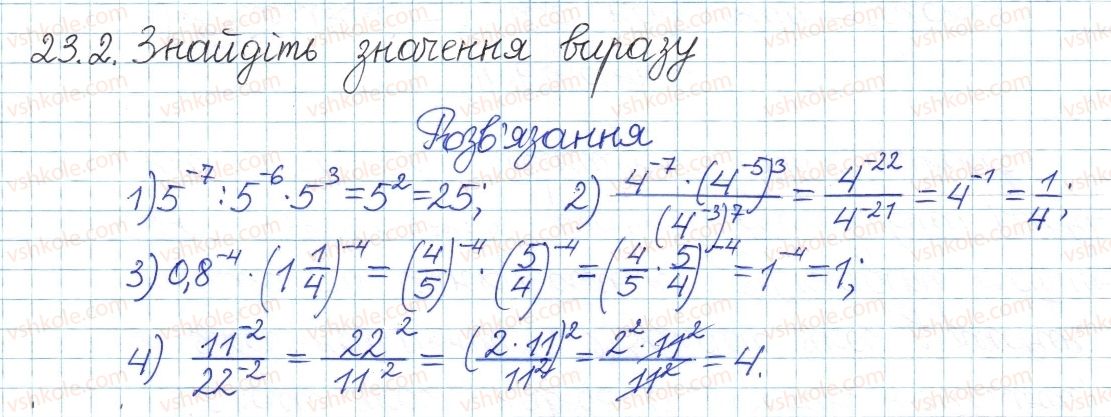 23.2. Знайдіть значення виразу
Розв'язання
1) 5^-7 : 5^-6 · 5^3 = 5^2 = 25; 2) (4^-7 · (4^-5)^3)/((4^-3)^7) = 4^-22/4^-21 = 4^-1 = 1/4;
3) 0,8^-4 · (1 1/4)^-4 = (4/5)^-4 · (5/4)^-4 = (4/5 · 5/4)^-4 = 1^-4 = 1;
4) 11^-2/22^-2 = 22^2/11^2 = (2·11)^2/11^2 = 2^2·11^2/11^2 = 4.